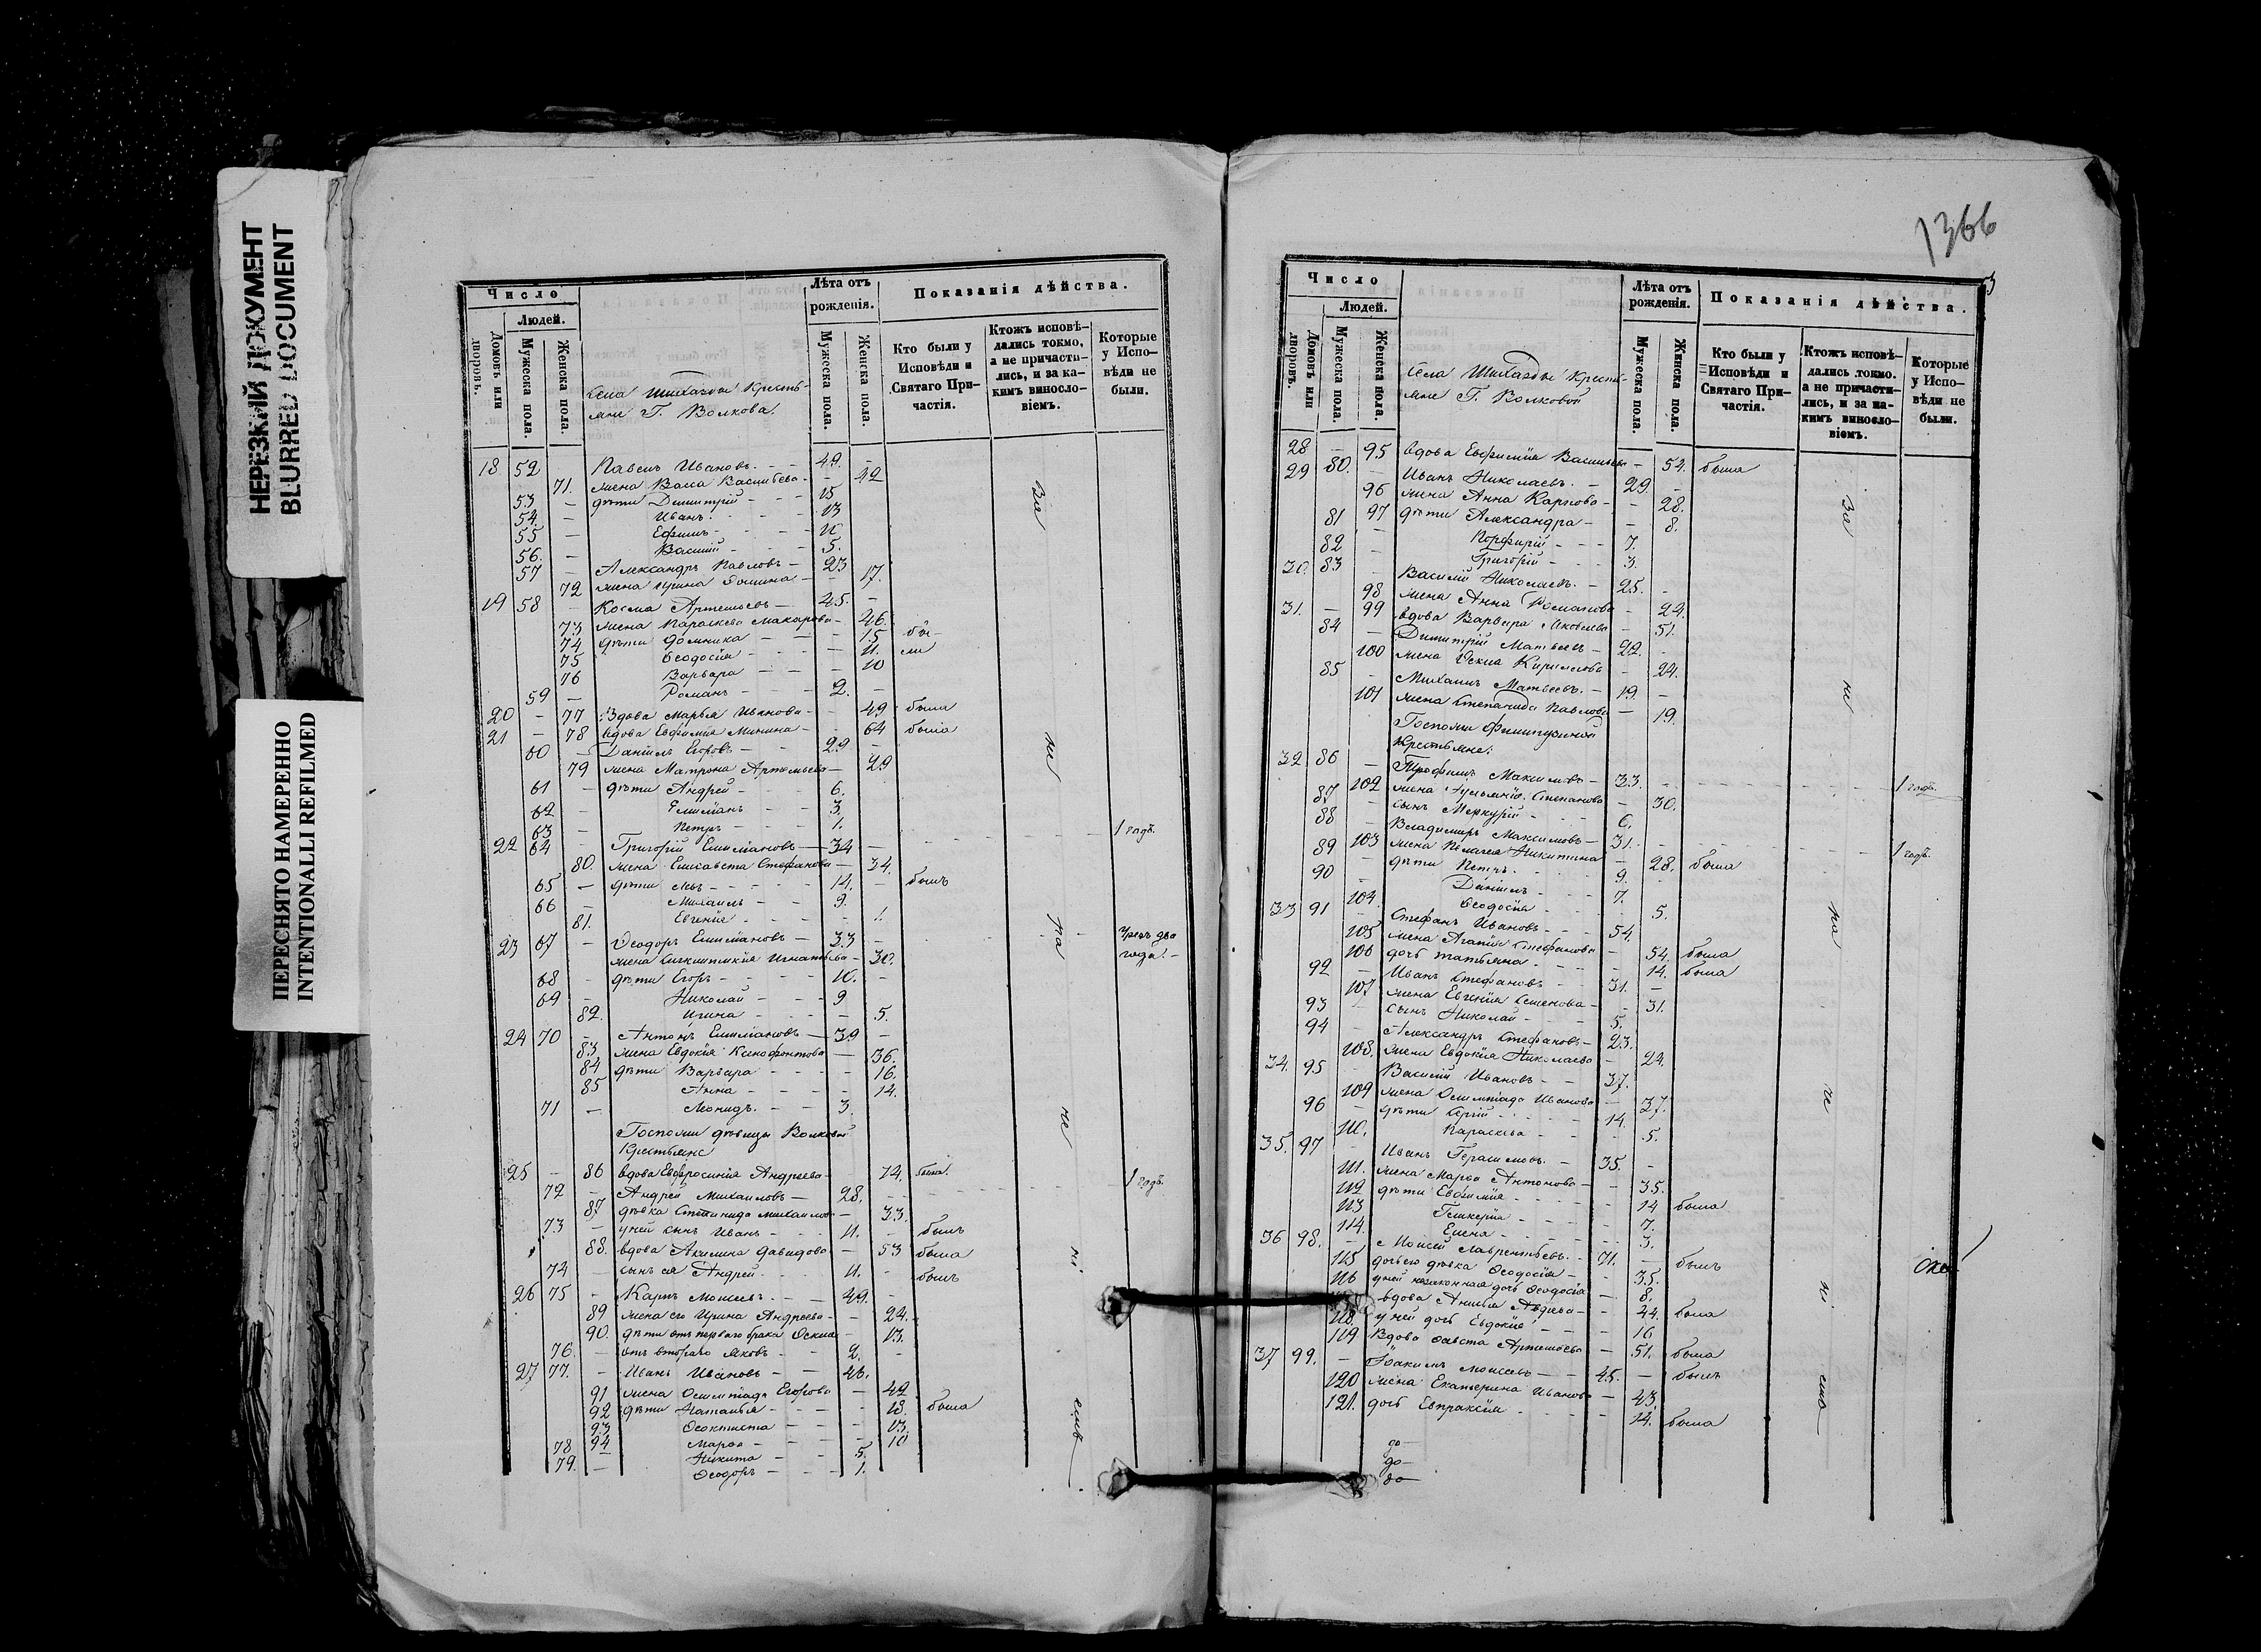 НЕРЕЗКИЙ ДОКУМЕНТ
BLURRED DOCUMENT
ПЕРЕСНЯТО НАМЕРЕННО
INTENTIONALLI REFILMED
Число
Лѣта отъ рожденія.
Показанія дѣйства.
Людей.
Домовъ или дворовъ.
Мужеска пола.
Женска пола.
Мужеска пола.
Женска пола.
Кто были у Исповѣди и Святаго Причастія.
Ктожъ исповѣдались токмо, а не причастились, и за какимъ винословіемъ.
Которые у Исповѣди не были.
Села Шихазды Крестьяне Г. Волкова.
18 52 Павелъ Ивановъ. - - 49. -
71. жена Васса Васильева - - 42
53 - дѣти Димитрій - - - 15
54. - Иванъ. - - - 13
55 - Ефимъ - - - 10
56. - Василій - - - 5.
57 - Александръ Павловъ - 23
72 жена Ирина Фомина - - 17.
19 58 - Косма Артемьевъ - 45. -
73 жена Параскева Макарова - 46.
74 дѣти Домника - - - 15 бы-
75 Ѳеодосія - - - 11. ли
76 Варвара - - - 10
59 - Романъ - - - 2. -
20 - 77 Вдова Марья Иванова - - 49 была
21 - 78 вдова Евфимія Минина - - 64 была
60 - Даніилъ Егоровъ - - 29 -
79 жена Матрона Артемьева - 29
61 - дѣти Андрей - - 6.
62 - Емиліанъ - - 3.
63 - Петръ - - - 1.
22 64 - Григорій Емиліановъ - 34 - 1 годъ.
80. жена Елисавета Стефанова - 34.
65 - дѣти Левъ - - - - 14. - былъ
66 - Михаилъ - - 9.
81. Евгенія - - - - 1.
23 67 - Ѳеодоръ Емиліановъ - 33 - чрезъ два года. -
жена Синклитикія Игнатьева - 30.
68 - дѣти Егоръ - - - - 10. -
69 - Николай - - - 9
82. Ирина - - - - 5.
24 70 - Антонъ Емиліановъ - 39 -
83 жена Евдокія Ксенофонтова - 36.
84 дѣти Варвара - - - - 16.
85 Анна - - - - 14.
71 - Леонидъ. - - 3.
Госпожи дѣвицы Волковой Крестьяне
25 - 86 вдова Евфросинія Андреева - 74. была.
72 - Андрей Михаиловъ - 28. - 1 годъ.
87 дѣвка Степанида Михаилова - 33.
73 - у ней сынъ Иванъ - - - 11. - былъ
88. вдова Акилина Давидова - 53 была
74 - сынъ ея Андрей - - 11. - былъ
26 75 - Карпъ Моисеевъ. - - 49. -
89 жена его Ирина Андреева - - 24.
90. дѣти отъ перваго брака Ѳекла - 13.
76. - отъ втораго Яковъ - - 2. -
27 77. - Иванъ Ивановъ - - 46.
91 жена Олимпіада Егорова - 42
92 дѣти Наталья - - - - 18. была
93 Ѳеоктиста - - - 13.
94 Марѳа - - - - 10
78 - Никита - - - 5.
79. - Ѳеодоръ - - - 1.
За не на не ні емъ
1366
3
Число
Лѣта отъ рожденія.
Показанія дѣйства.
Людей.
Домовъ или дворовъ.
Мужеска пола.
Женска пола.
Мужеска пола.
Женска пола.
Кто были у Исповѣди и Святаго Причастія.
Ктожъ исповѣдались токмо, а не причастились, и за какимъ винословіемъ.
Которые у Исповѣди не были.
Села Шихазды Крестьяне Г. Волковой
28 - 95 вдова Евфимія Васильева - 54. была
29 80. - Иванъ Николаевъ. - 29. -
96 жена Анна Карпова - - 28.
97 дѣти Александра - - 8.
81 - Порфирій - - - 7.
82 - Григорій - - - 3.
30. 83 - Василій Николаевъ. - 25. -
98 жена Анна Романова - 24.
31. - 99 вдова Варвара Яковлева - 51.
84 - Димитрій Матвеевъ - 22. -
100 жена Ѳекла Кириллова - 24.
85 - Михаилъ Матвеевъ. - 19. -
101 жена Степанида Павлова - 19.
Госпожи Филипузиной Крестьяне:
32 86 - Трофимъ Максимовъ - 33. - 1 годъ.
102 жена Степанова - 30.
87 - сынъ Меркурій - - - 6.
88 - Владимиръ Максимовъ - 31. - 1 годъ.
103 жена Пелагея Никитина - 28. была
89 - дѣти Петръ. - - - 9. -
90 - Даніилъ - - - 7.
104. Ѳеодосія - - - 5.
33 91 - Стефанъ Ивановъ - - - 54.
105 жена Агапія Стефанова - 54. была
106 дочь Татьяна - - - - 14. была
92 - Иванъ Стефановъ - - 31. -
107 жена Евгенія Семенова - - 31.
93 - сынъ Николай - - - 5.
94 - Александръ Стефановъ - 23.
108. жена Евдокія Николаева - 24.
34. 95 - Василій Ивановъ - - 37.
109 жена Олимпіада Иванова - 37.
96 - дѣти Сергій - - - 14.
110. Параскева - - - 5.
35. 97 Иванъ Герасимовъ. - 35. -
111. жена Марѳа Антонова - - 35.
112 дѣти Евфимія - - - 14 была
113 Гликерія - - - 7.
114. Елена - - - 3.
36 98. - Моисей Лаврентьевъ. - 71. - былъ
115 дочь его дѣвка Ѳеодосія - - 35.
116 у ней незаконная дочь Ѳеодосія - 8.
вдова Анисья Авдеева - - 44. была
118. у ней дочь Евдокія - - - 16
119 Вдова Ѳавста Артемьева - 51. была
37 99. - Іоакимъ Моисеевъ - - 45. - былъ
120 жена Екатерина Иванова - 43.
121. дочь Евпраксія - - - 14. была
до-
до-
до-
За не на не ні емъ